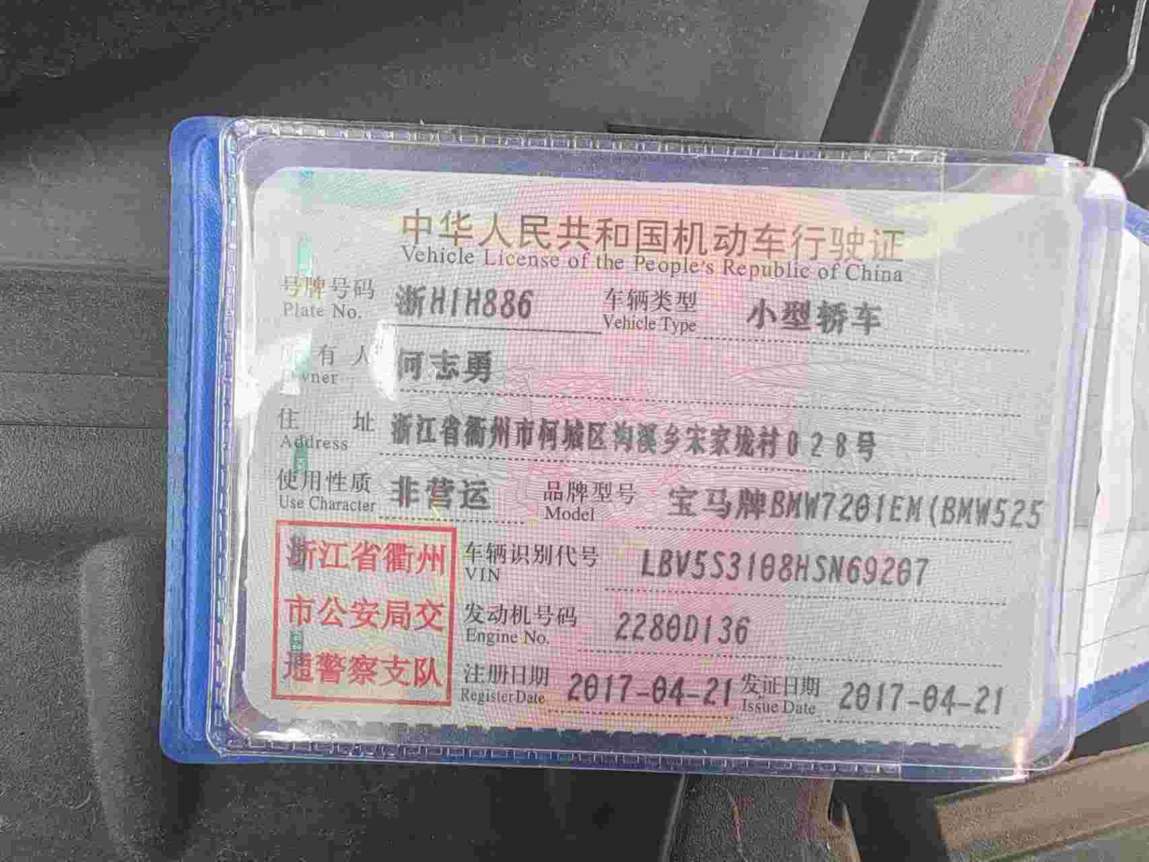 中华人民共和国机动车行驶证
Vehicle License of the People's Republic of China
号牌号码 浙H1H886 车辆类型 小型轿车
Plate No. Vehicle Type
所有人 何志勇
Owner
住址 浙江省衢州市柯城区沟溪乡宋家垅村028号
Address
使用性质 非营运 品牌型号 宝马牌BMW7201EM(BMW525
Use Character Model
浙江省衢州
市公安局交
通警察支队
车辆识别代号 LBV5S3108HSN69207
VIN
发动机号码 2280D136
Engine No.
注册日期 2017-04-21 发证日期 2017-04-21
Register Date Issue Date